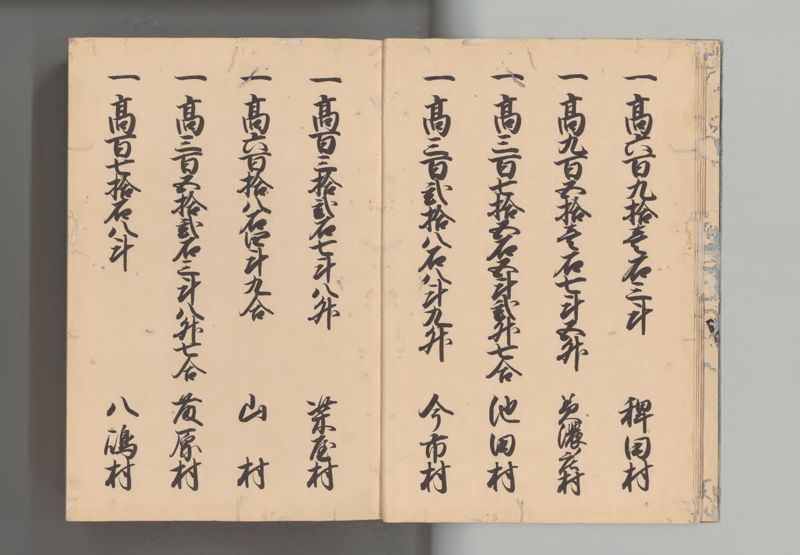 一高六百九拾壱石三斗 稗田村
一高九百五拾壱石七斗五升 美濃庄村
一高三百七拾五石五斗弐升七合 池田村
一高三百弐拾八石八斗九升 今市村
一高百三拾弐石七斗八升 柴屋村
一高六百拾八石四斗九合 山村
一高三百五拾弐石三斗八升七合 藤原村
一高百七拾石八斗 八嶋村